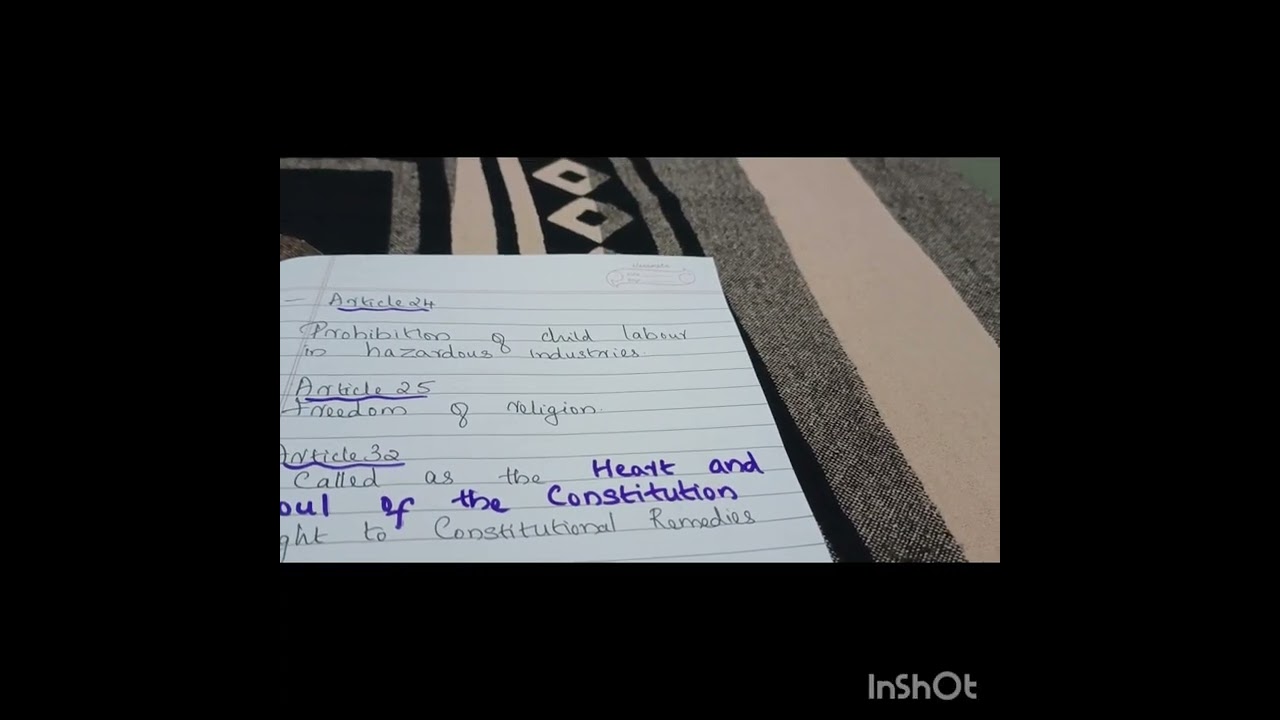 – Article 24
Prohibition of child labour
in hazardous industries.
Article 25
Freedom of religion.
Article 32
Called as the Heart and
oul of the Constitution
ght to Constitutional Remedies
InShOt